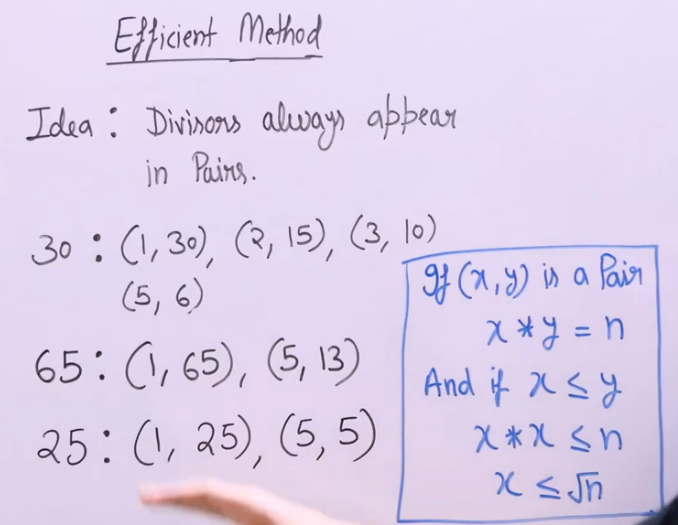 Efficient Method
Idea : Divisors always appear
in Pairs.
30 : (1, 30), (2, 15), (3, 10)
(5, 6)
65 : (1, 65), (5, 13)
25 : (1, 25), (5, 5)
If (x, y) is a Pair
x * y = n
And if x ≤ y
x * x ≤ n
x ≤ √n